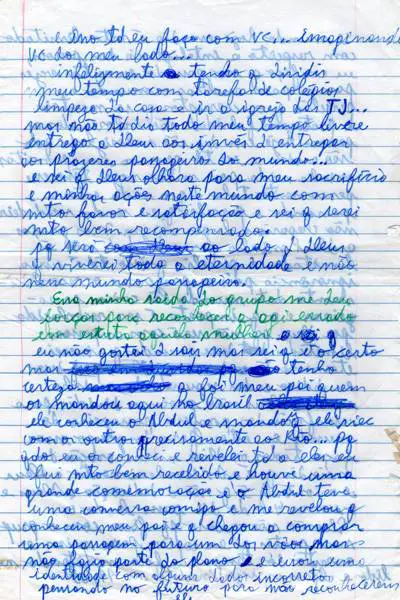 Ano td eu faço com vc... imaginando
vc do meu lado...
infelizmente tendo q dividir
meu tempo com tarefa de colégio
limpeza da casa e ir a igreja das TJ...
mas não td dia todo meu tempo livre
entrego a Deus aos invés d entregar
aos prazeres passageiros do mundo...
e sei q Deus olhara para meu sacrifício
e minhas ações neste mundo com
mto favor e satisfação e sei q serei
mto bem recompensado.
pq serei ao lado d Deus
q viverei toda a eternidade e não
nesse mundo passageiro.
Essa minha saida do grupo me deu
forças para reconhecer q agi errado
em estutra aquelas mulher e sei q
eu não gostei d sair mas sei q é o certo
mas tenho
certeza q foi meu pai quem
os mandou aqui no brasil
ele conheceu o Abdul e mandou q ele viec
com os outros precisamente ao Rio... pq
qdo eu os conheci e revelei td a eles eu
fui mto bem recebido e houve uma
grande comemoração e o Abdul teve
uma conversa comigo e me revelou q
conheceu meu pai e q chegou a comprar
uma passagem para um dos vôos mas
não fazia parte do plano e usou uma
identidade com alguns dados incorretos
pensando no futuro para nos reconhecerem